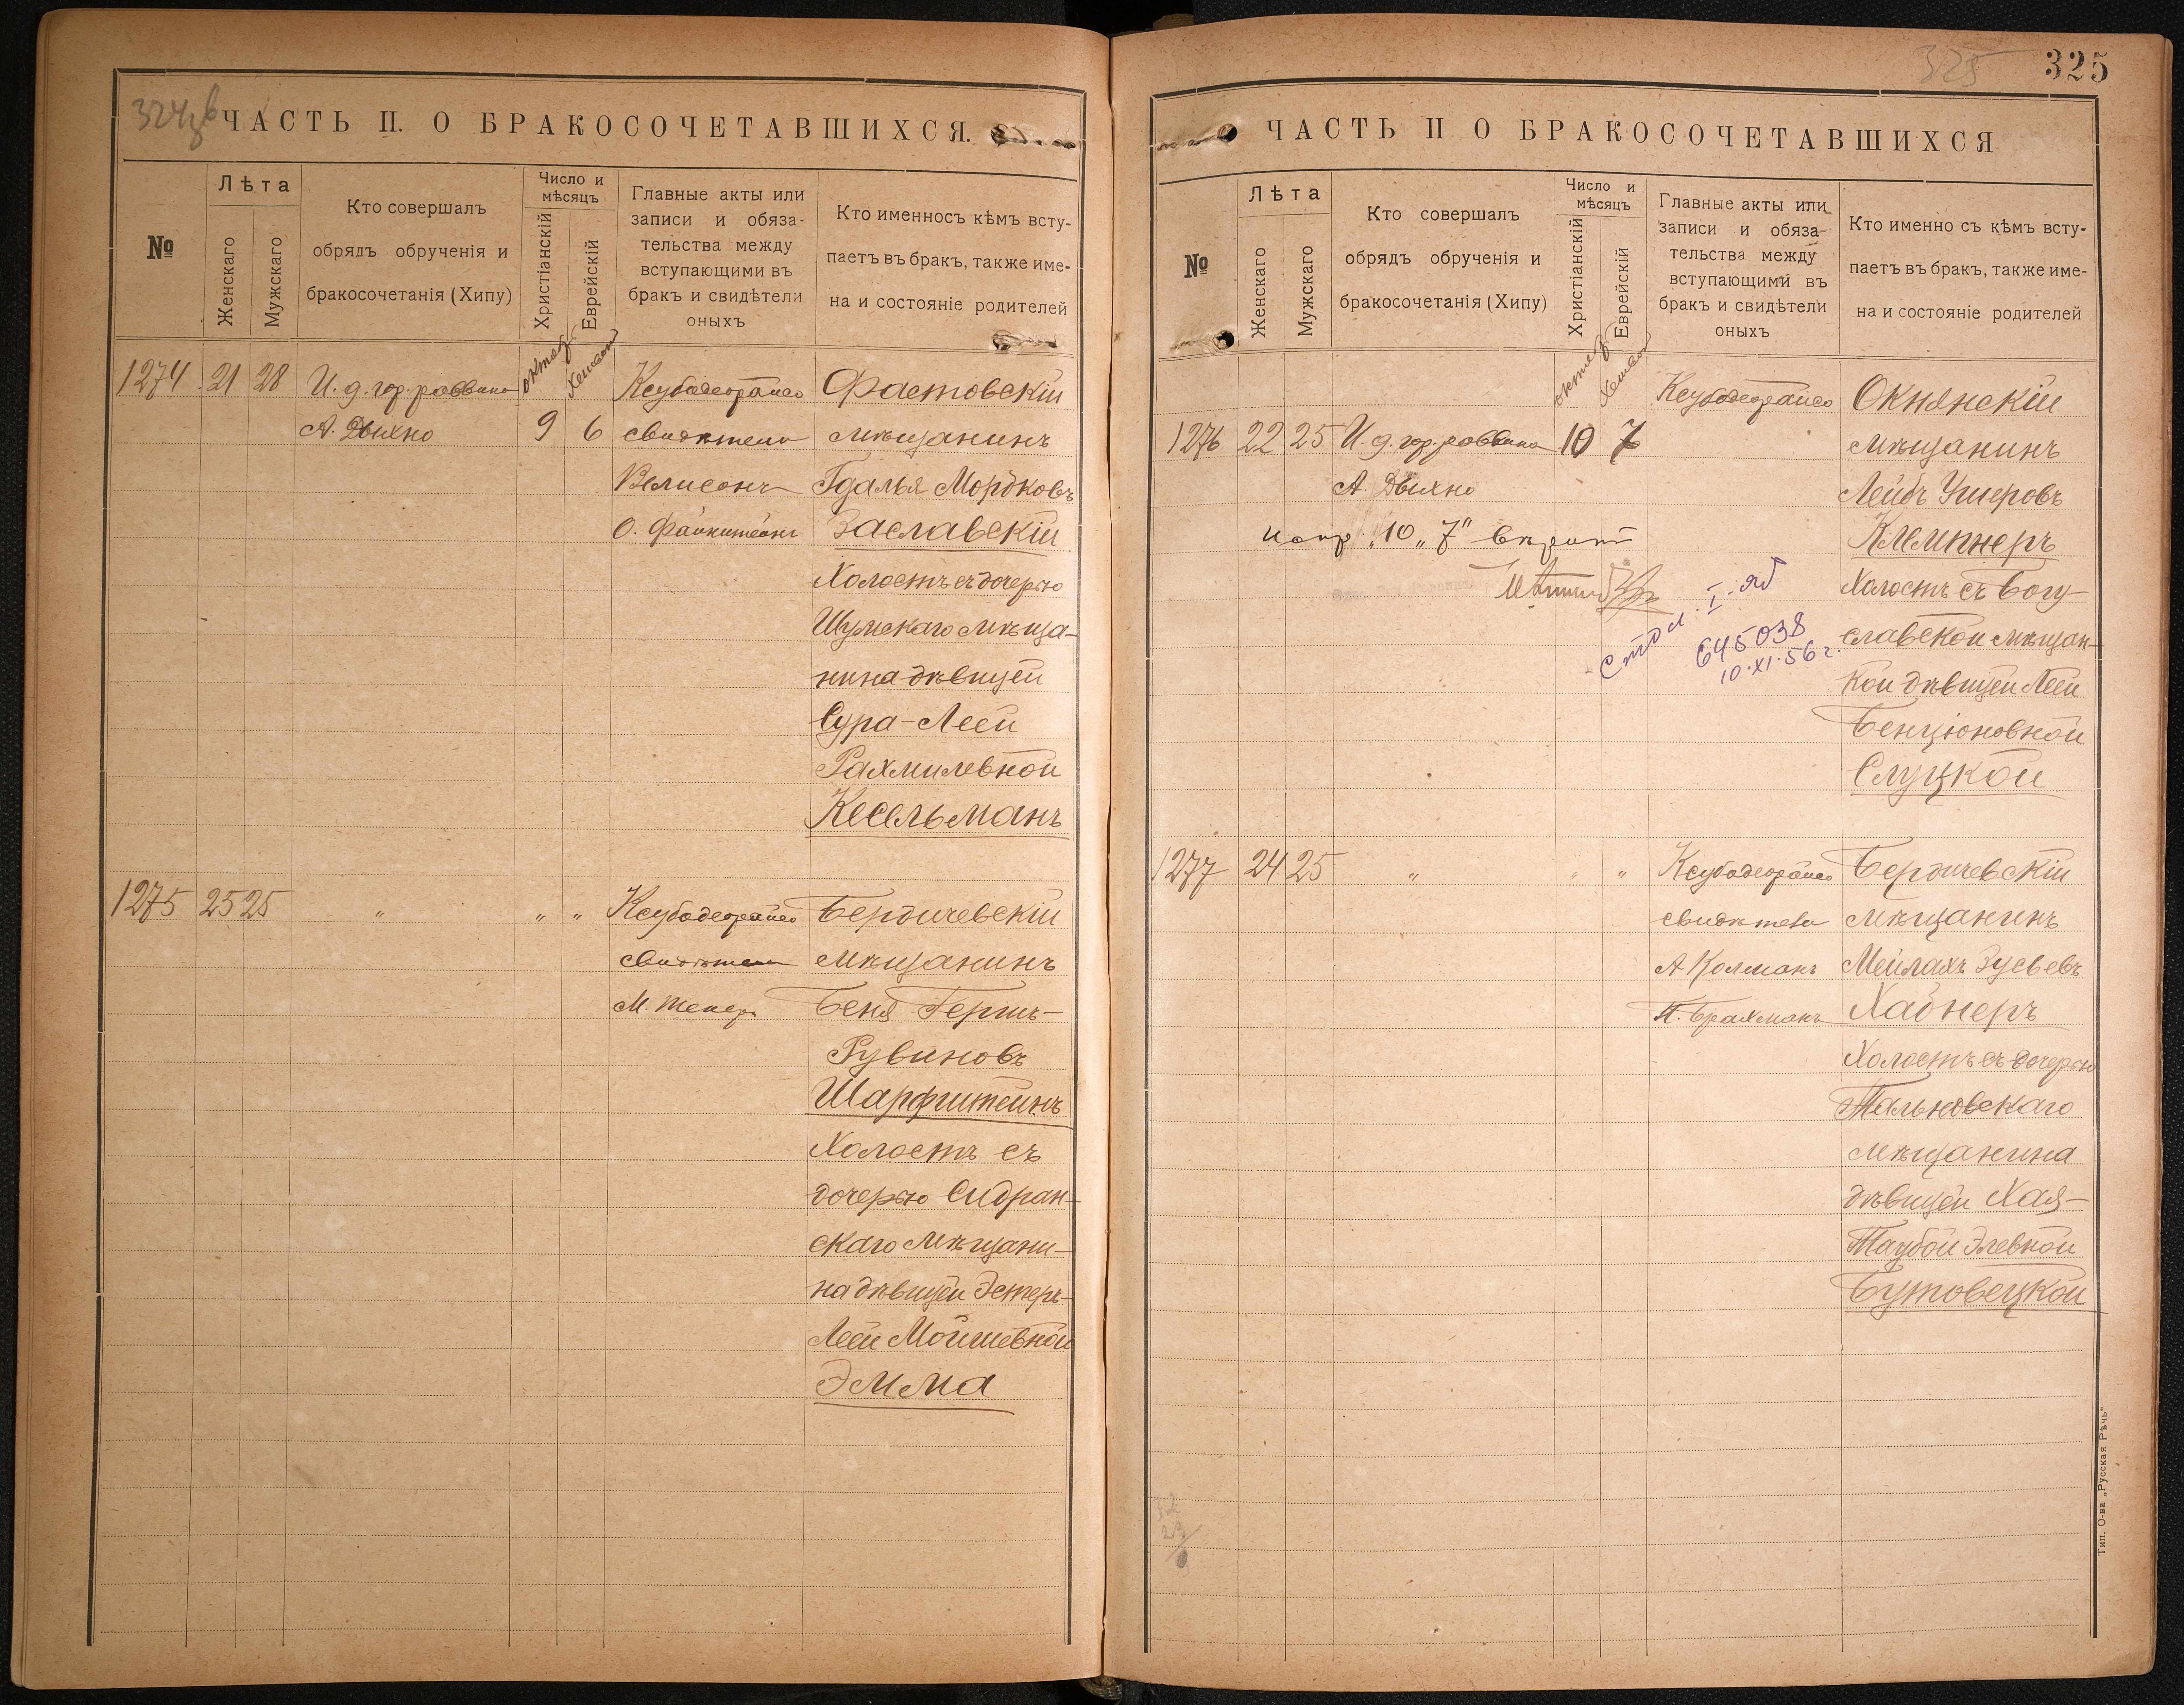 324 об
ЧАСТЬ II. О БРАКОСОЧЕТАВШИХСЯ.
№
Лѣта
Женскаго
Мужскаго
Кто совершалъ
обрядъ обрученія и
бракосочетанія (Хипу)
Число и
мѣсяцъ
Христіанскій
Еврейскій
Главные акты или
записи и обяза-
тельства между
вступающими въ
бракъ и свидѣтели
оныхъ
Кто именносъ кѣмъ всту-
паетъ въ бракъ, также име-
на и состояніе родителей
1274 21 28 И. д. гор. раввина
А. Дыхно
9 6
свидѣтели
О. Файнштейнъ
Фастовскій
мѣщанинъ
Гдалья Мордковъ
Заславскій
Холостъ съ дочерью
Шумскаго мѣща-
нина дѣвицей
Сура-Леей
Рахмилевной
Кесельманъ
1275 25 25 " " "
свидѣтели
Бердичевскій
мѣщанинъ
Беня Гершъ-
Рувиновъ
Шарфштейнъ
Холостъ съ
дочерью Сидран-
скаго мѣщани-
на дѣвицей Эстеръ-
Леей Мойшевной
Эмма
325
325
ЧАСТЬ II О БРАКОСОЧЕТАВШИХСЯ
№
Лѣта
Женскаго
Мужскаго
Кто совершалъ
обрядъ обрученія и
бракосочетанія (Хипу)
Число и
мѣсяцъ
Христіанскій
Еврейскій
Главные акты или
записи и обяза-
тельства между
вступающими въ
бракъ и свидѣтели
оныхъ
Кто именно съ кѣмъ всту-
паетъ въ бракъ, также име-
на и состояніе родителей
1276 22 25 И. д. гор. раввина 10 7
А. Дыхно
испр. "10 "7"
I-ЯБ
645038
10.XI.56 г.
Окнянскій
мѣщанинъ
Лейбъ Ушеровъ
Клемпнеръ
Холостъ съ Богу-
славской мѣщан-
кой дѣвицей Леей
Бенціоновной
Слуцкой
1277 24 25 " " "
свидѣтели
А Колманъ
Брахманъ
Бердичевскій
мѣщанинъ
Мейлахъ Зусьевъ
Хаднеръ
Холостъ съ дочерью
Тальновскаго
мѣщанина
дѣвицей Хая-
Таубой Элевной
Бутовецкой
Тип. О-ва „Русская Рѣчь"